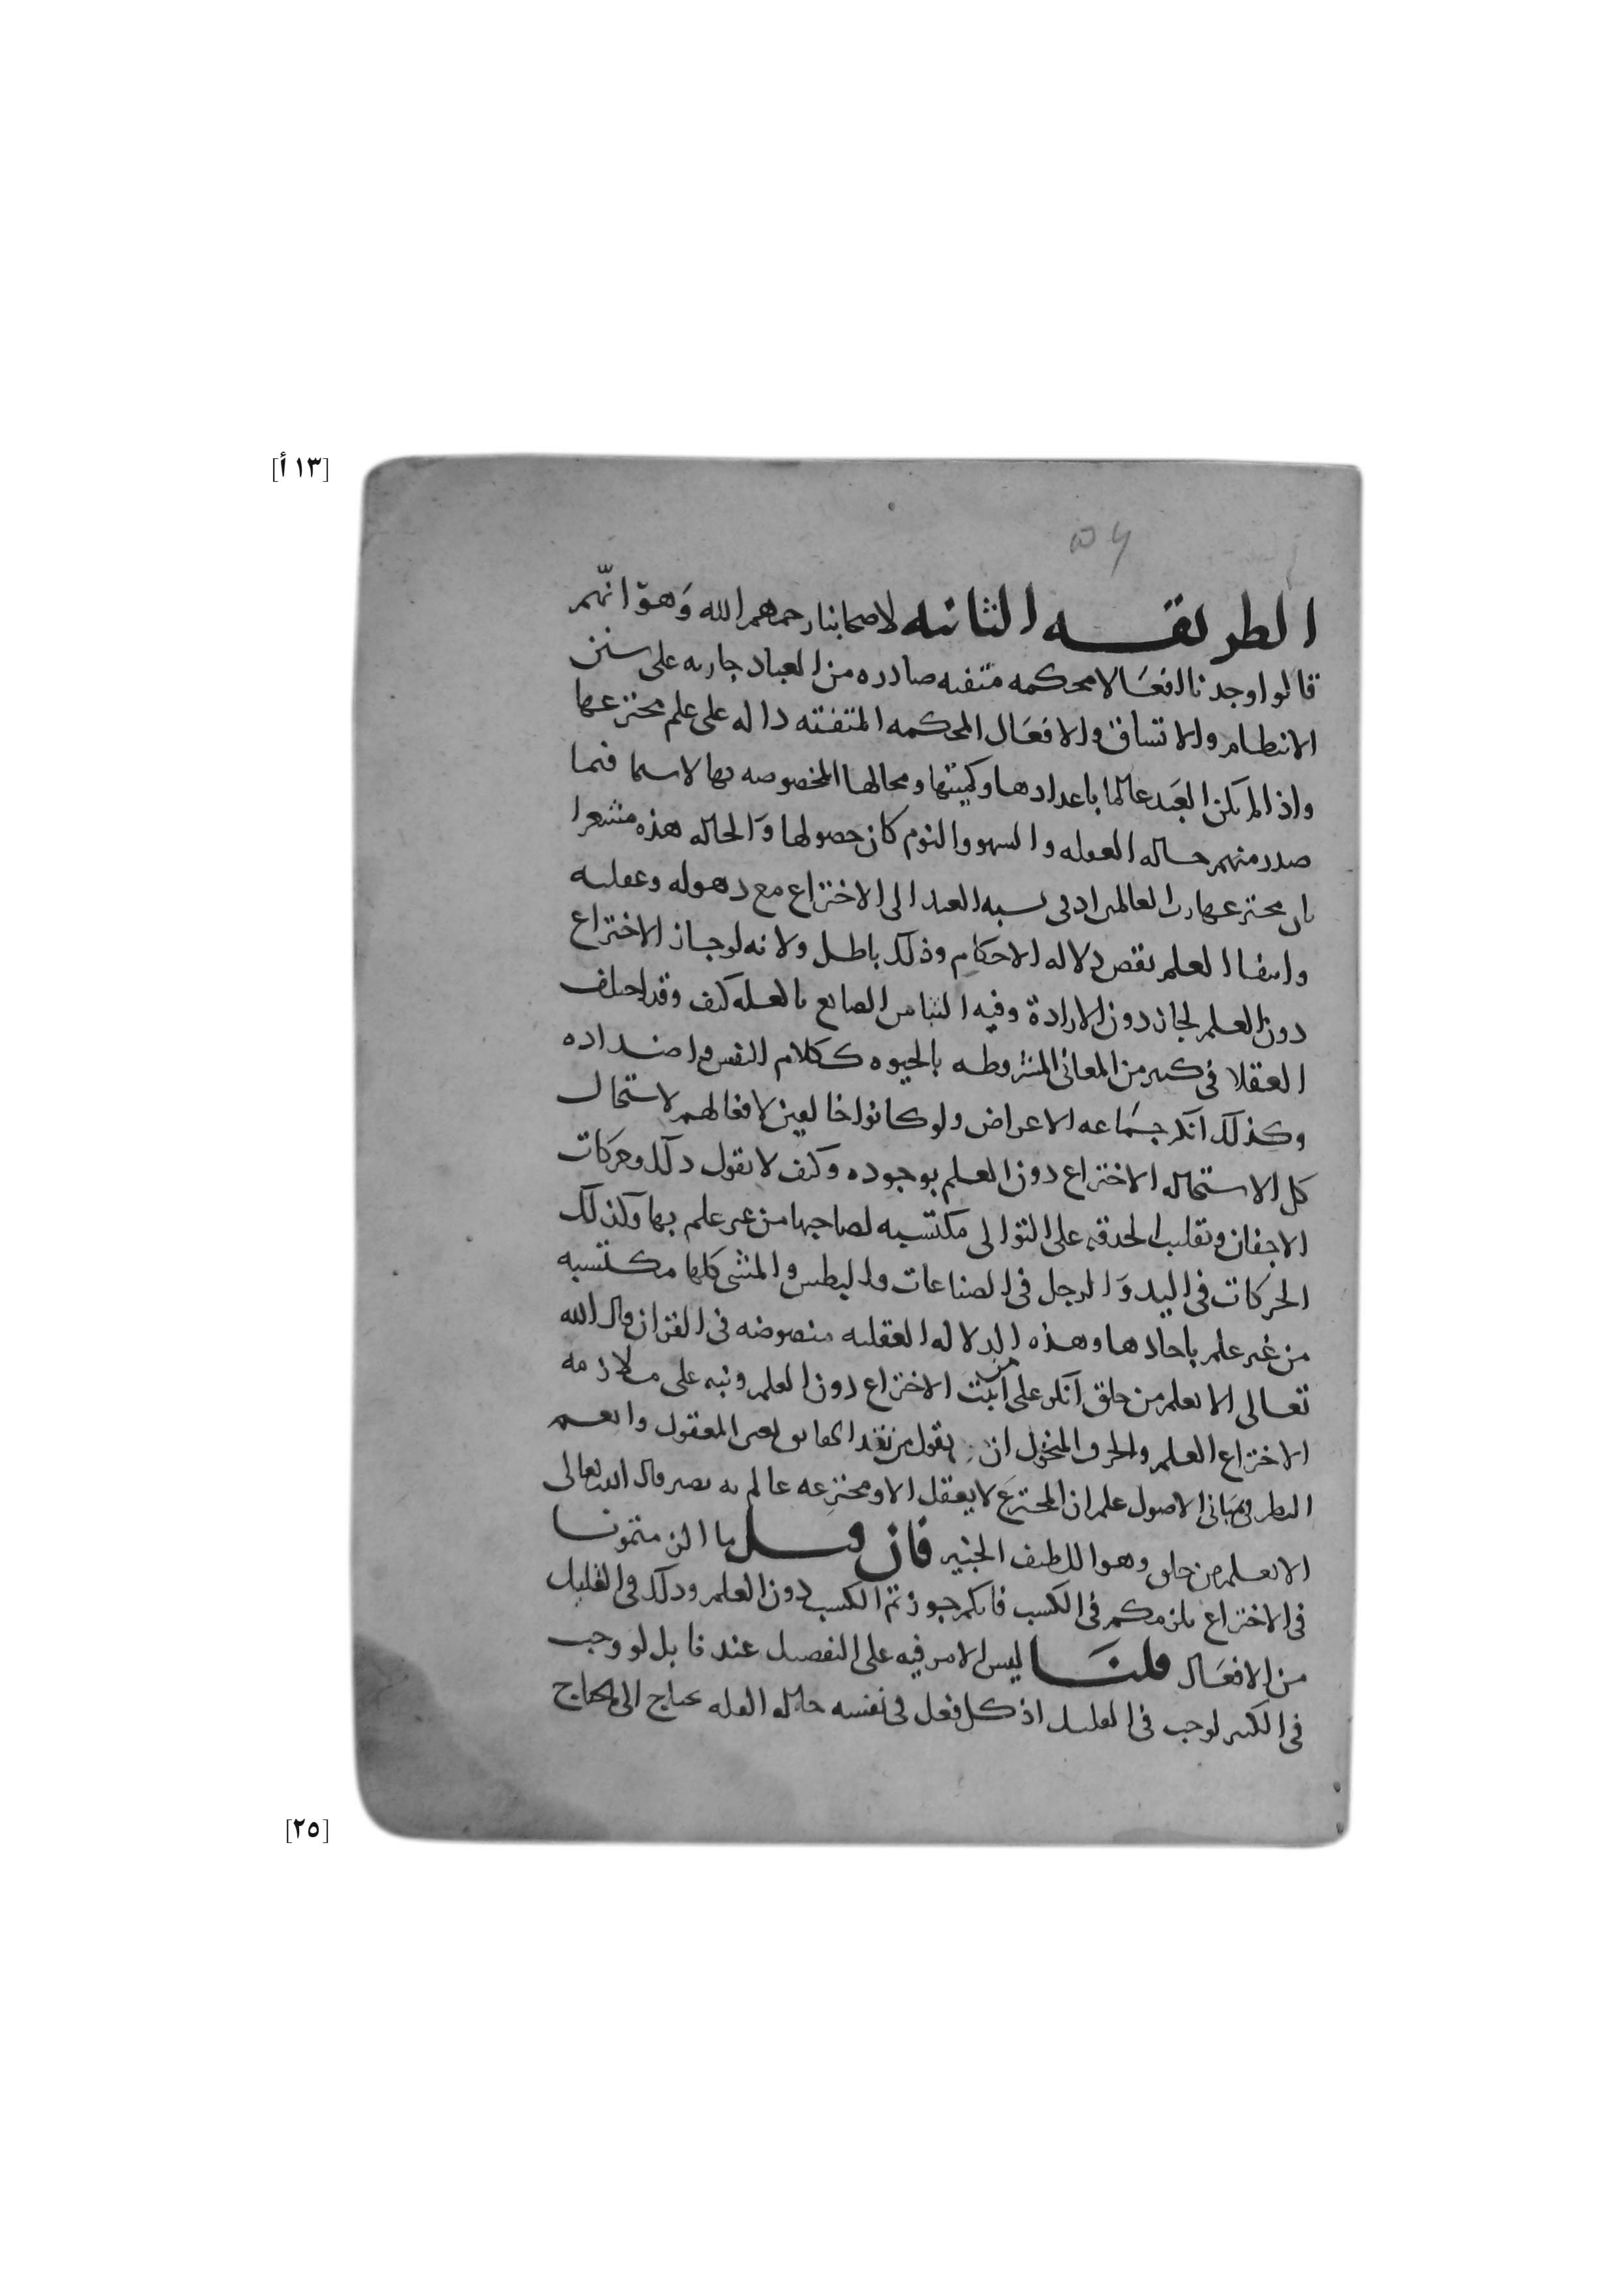 [١٣ أ]
٥٦
الطريقه الثانيه لاصحابنا رحمهم الله وَهوَ انّهم
قالوا وجدنا افعَالا محكمه متقنه صادره من العباد جاريه على سنن
الانتظام والاتساق والافعَال المحكمه المتقنه داله على علم مخترعها
واذا لم يكن العَبد عالما باعدادها وكميتها ومحالها المخصوصه بها لاسيما فيما
صدر منهم حاله الغفله والسهو والنوم كان حصولها وَالحاله هذه مشعرا
بان مخترعها رب العالمين اذ في نسبه العبد الى الاختراع مع ذهوله وغفلته
وانتفا العلم نقض دلاله الاحكام وذلك باطل ولانه لو جاز الاختراع
دون العلم لجاز دون الارادة وفيه التباس الصانع بالعله كيف وقد اختلف
العقلا في كثير من المعاني المشروطه بالحيوه ككلام النفس واضداده
وكذلك انكر جمَاعه الاعراض ولو كانوا خالقين لافعالهم لاستحال
كل الاستحاله الاختراع دون العلم بوجوده وكيف لا نقول ذلك وحركات
الاجفان وتقليب الحدقه على التوالى مكتسبه لصاحبها من غير علم بها وكذلك
الحركات في اليد وَالرجل في الصناعات والبطش والمشى كلها مكتسبه
من غير علم باحادها وهذه الدلاله العقليه منصوصه في القران قال الله
تعالى الا يعلم من خلق انكر على من اثبت الاختراع دون العلم ونبه على ملازمه
الاختراع العلم والحرف المنخول ان يقول من نقد الحقائق بعين المعقول وانعم
النظر في مبَانى الاصول علم ان المخترعَ لا يعقل الا ومخترعه عالم به بصير قال الله تعالى
الا يعلم من خلق وهو اللطيف الخبير فان قيل ما الزمتمونا
في الاختراع يلزمكم في الكسب فانكم جوزتم الكسب دون العلم وذلك في القليل
من الافعَال قلنَا ليس الامر فيه على التفصيل عندنا بل لو وجب
في الكثير لوجب في القليل اذ كل فعل في نفسه حاله القله يحتاج الى ما يحتاج
[٢٥]